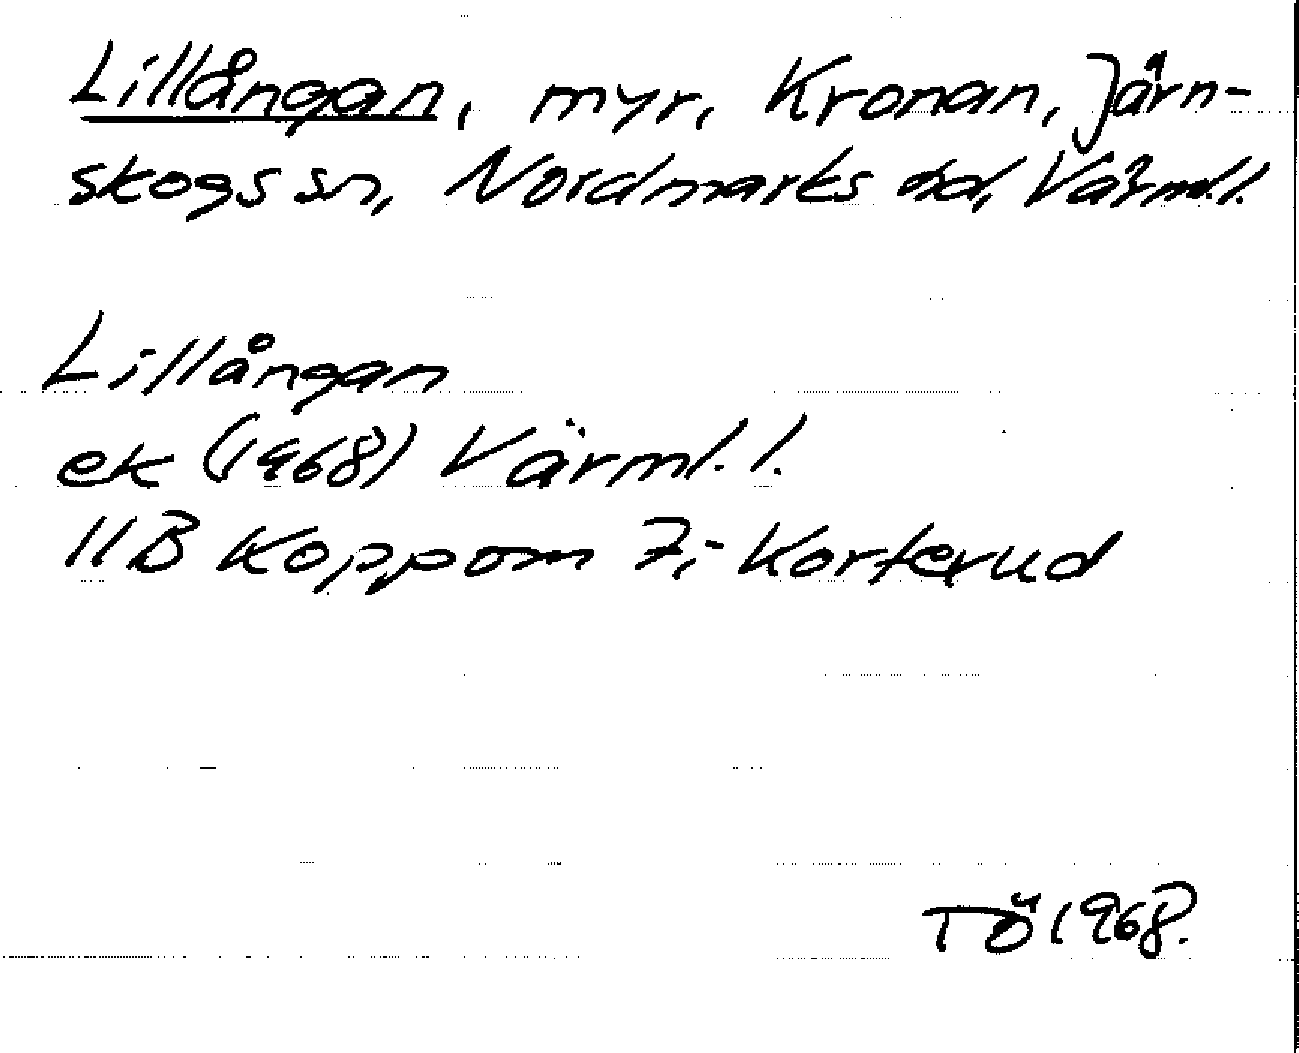 Lillångan, myr, Kronan, Järn-
skogs sn, Nordmarks hd, Värml.l.
Lillångan
ek (1968) Värml.l.
11B Koppom 7i- Korterud
TÖ 1968.